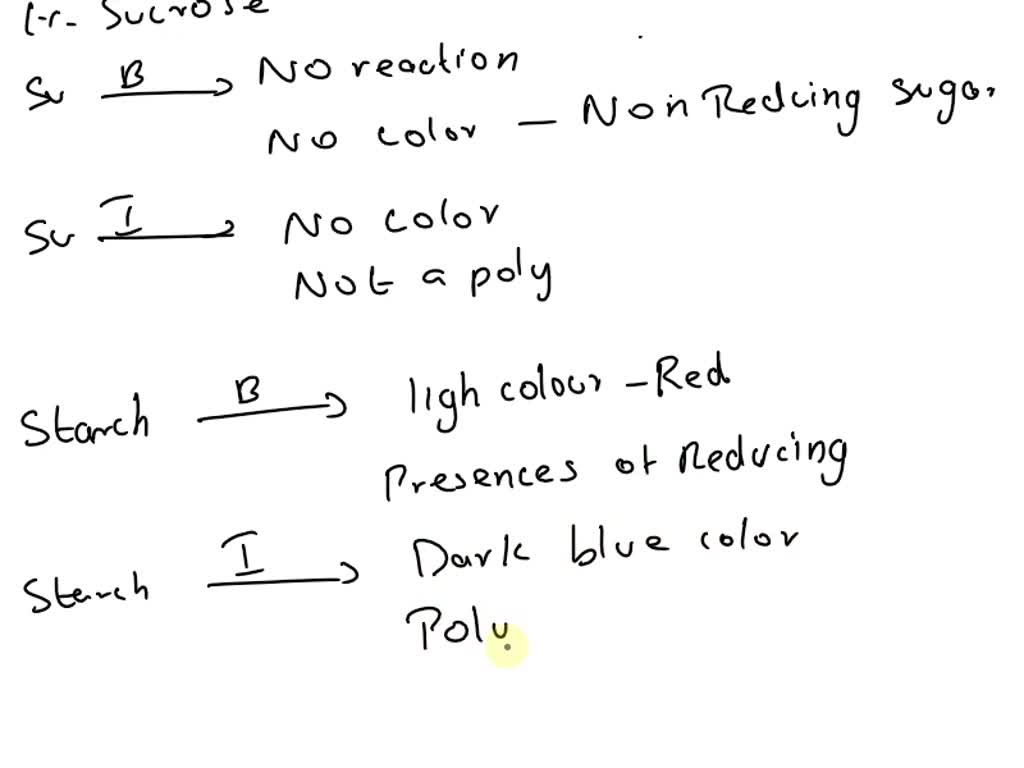 Sucrose
Su B → No reaction
No color – Non Redcing sugar
Su I → No color
Not a poly
Starch B → ligh colour – Red
Presences of Reducing
Starch I → Dark blue color
Poly